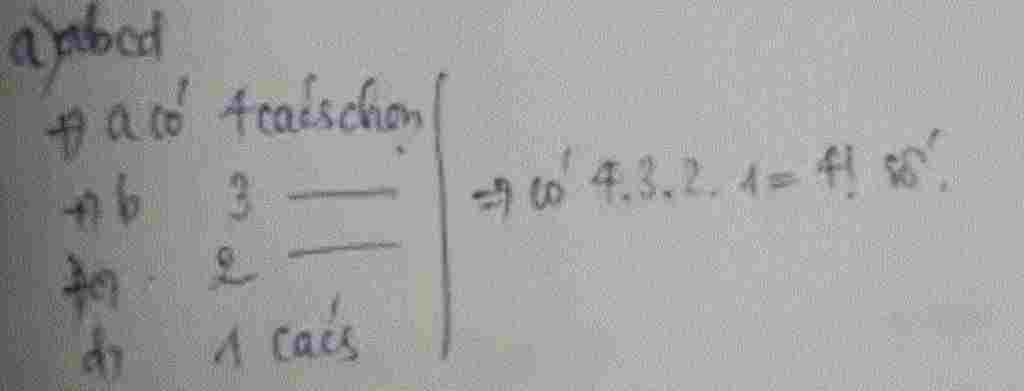 a) abcd
→ a có 4 cách chọn
→ b 3 ——
2 ——
d 1 cách
⇒ có 4.3.2.1 = 4! số.